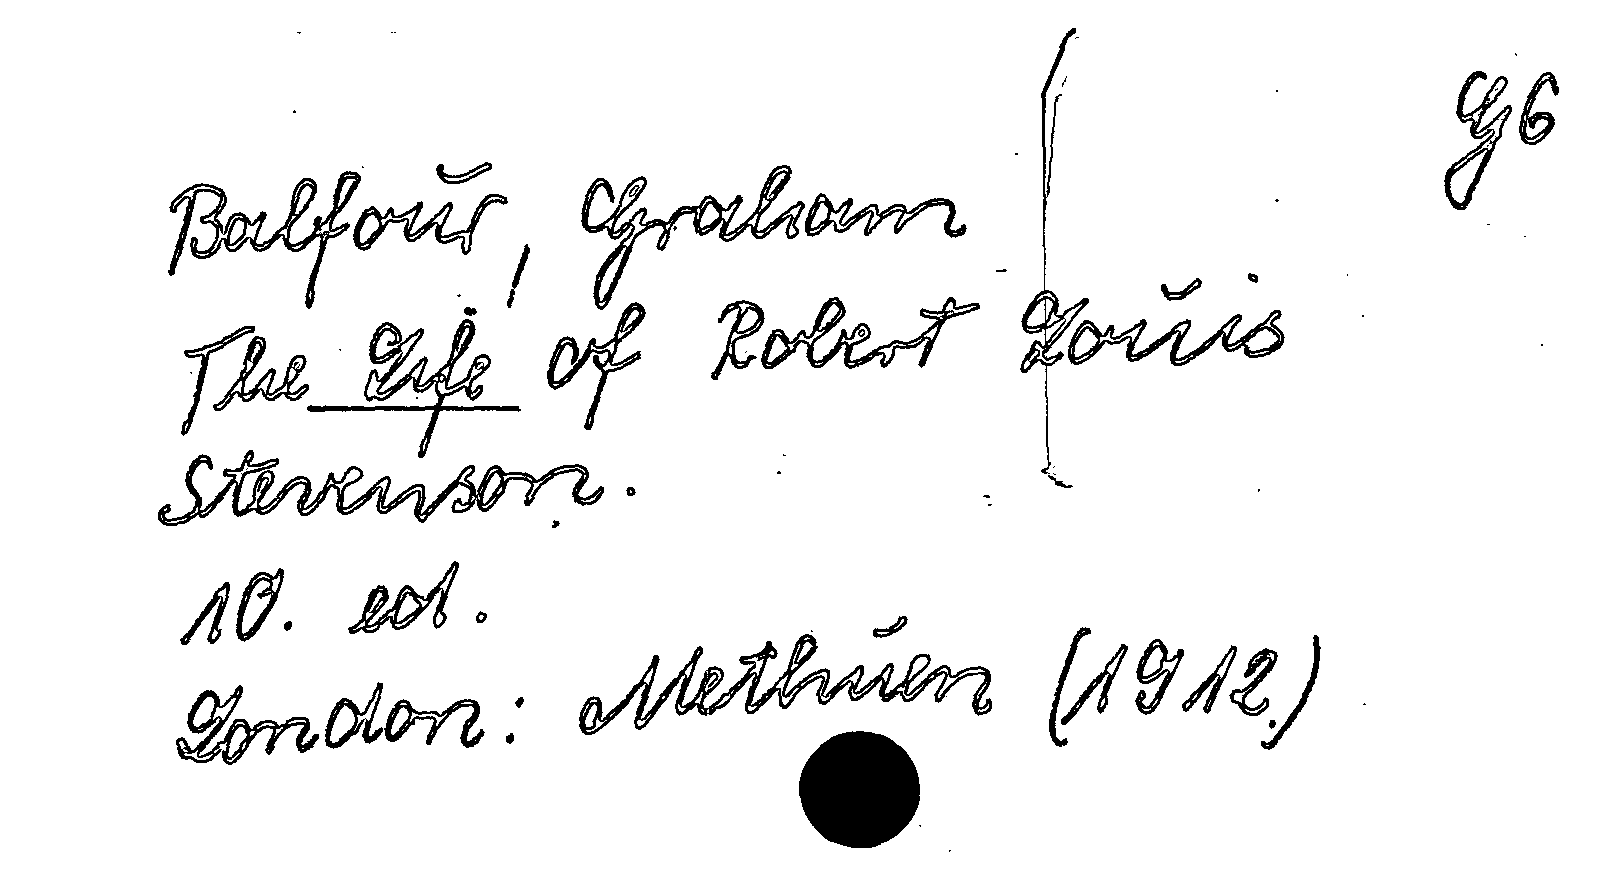 G6
Balfour, Graham
The Life of Robert Louis
Stevenson.
10. ed.
London: Methuen (1912.)